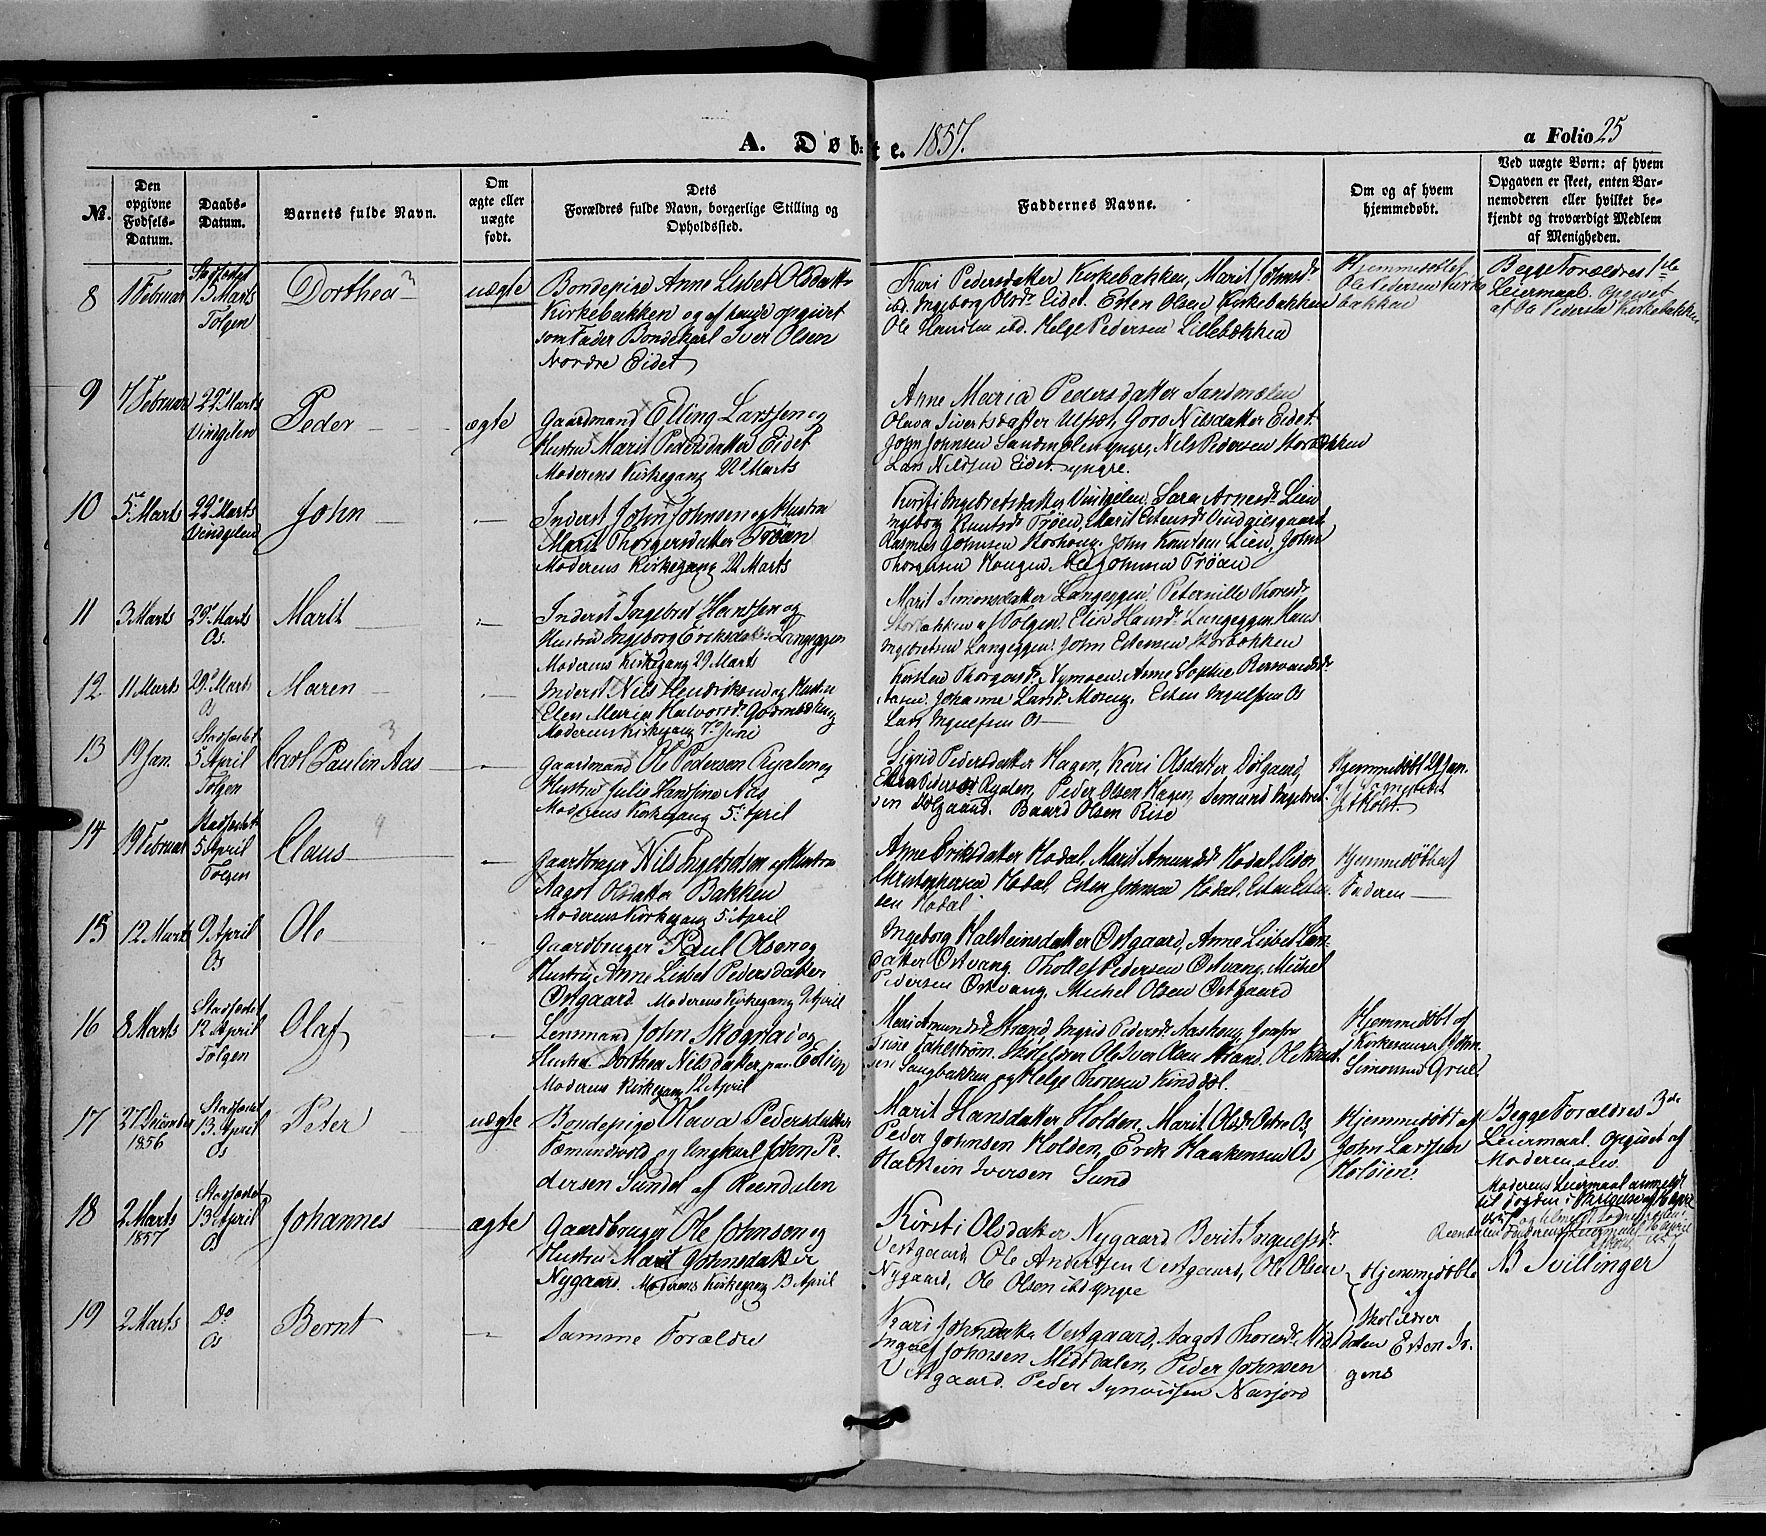 A. Døbte. 1857.
a Folio 25
No.
Den opgivne Fødsels-Datum.
Daabs-Datum.
Barnets fulde Navn.
Om ægte eller uægte født.
Dets
Forældres fulde Navn, borgerlige Stilling og
Opholdssted.
Faddernes Navne.
Om og af hvem
hjemmedøbt.
Ved uægte Børn: af hvem
Opgaven er skeet, enten Bar-
nemoderen eller hvilket be-
kjendt og troværdigt Medlem
af Menigheden.
8
1 Februar
Stadfæstet
15 Marts
Tolgen
Dorthea
uægte
Bondepige Anne Lisbet Olsdatter
Kirkebakken og af hende opgivet
som Fader Bondekarl Iver Olsen
Nordre Eidet
Kari Pedersdatter Kirkebakken, Marit Johnsdr
ibd. Ingeborg Olsdr Eidet. Esten Olsen Kirkebakken
Ole Hansen ibd. Helge Pedersen Lillebækken
Hjemmedøbt af
Ole Pedersen Kirke
bakken
Begge Forældres 1ste
Leiermaal. opgivet
af Ole Pedersen Kirkebakken
9
7 Februar
22 Marts
Vindgelen
Peder
ægte
Gaardmand Elling Larssen og
Hustru Marit Pedersdatter Eidet
Moderens Kirkegang 22 Marts
Anne Maria Pedersdatter Sandmælen
Olava Sivertsdatter Ulfsæt, Goro Nilsdatter Eidet.
John Johnsen Sandmælen yngre, Nils Pedersen Storbekken
Lars Nilssen Eidet yngre.
10
5 Marts
22 Marts
Vindgelen
John
Inderst John Johnsen og Hustru
Marit Thorgersdatter Trøen
Moderens Kirkegang 22 Marts
Kirsti Ingebretsdatter Vindgelen, Sara Arnesdr Lien
Ingeborg Knutsdr Trøen, Marit Estensdr Vindgelsgaard
Rasmus Johnsen Storhoug. John Knutsen Lien, John
Thorgersen Hougen Johnsen Trøen
11
3 Marts
29 Marts
Os.
Marit
Inderst Ingebret Hansen og
Hustru Ingeborg Eriksdatter Langeggen
Moderens Kirkegang 29 Marts
Marit Simonsdatter Langeggen, Peternille Thoresdr
Storbækken af Tolgen, Elie Hansdr Langeggen Hans
Ingebretsen Langeggen, John Estensen Storbækken
12
11 Marts
29 Marts
Os
Maren
Inderst Nils Hendriksen og Hustru
Elen Maria Halvorsdr
Moderens Kirkegang 7 Juni
Kirsten Thorgersdr Nymoen, Anne Sophie
Aasen, Johanne Larsdr Moseng, Esten Ingulfsen Os
Lars Ingulfsen Os
13
19 Jan.
Stadfæstet
5 April
Tolgen
Carl Paulin Aas
Gaardmand Ole Pedersen Ryalen og
Hustru Julie Hanssine Aas
Moderens Kirkegang 5 April
Sigrid Pedersdatter Hagen, Kari Olsdatter Dølgaard,
Pedersdr Ryalen, Peder Olsen Hagen, Semund Ingebret-
sen Dølgaard. Baard Olsen Rise
Hjemmedøbt 29 Jan.
14
19 Februar
Stadfæstet
5 April
Tolgen
Claus
Gaardbruger Nils Ingebretsen og Hustru
Aagot Olsdatter Bakken
Moderens Kirkegang 5 April
Anne Eriksdatter Hodal, Marit Amundsdr Hodal, Peder
Christophersen Hodal, Esten Johnsen Hodal, Esten Esten-
sen Hodal
Hjemmedøbt af
Faderen
15
12 Marts
9 April
Os
Ole
Gaardbruger Paul Olsen og
Hustru Anne Lisbet Pedersdatter
Østgaard. Moderens Kirkegang 9 April
Ingeborg Halsteinsdatter Østgaard, Anne Lisbet Lars-
datter Østvang. Thollef Pedersen Østvang, Michel
Pedersen Østvang, Michel Olsen Østgaard
16
8 Marts
Stadfæstet
12 April
Tolgen
Olaf
Lensmand John Skogstad og
Hustru Dorthea Nilsdatter paa Eidlien
Moderens Kirkegang 12 April
Mari Amundsdr Strand, Ingrid Pedersdr Aashoug, Jomfru
Fahlstrøm. Skolelærer Ole Iver Olsen Strand, Ole Knut-
sen Langbakken og Helge Thoresen Kinddøl.
Hjemmedøbt af
Kirkesanger John
Simonsen Grue
17
27 December
1856
Stadfæstet
13 April
Os
Peter
uægte
Bondepige Olava Pedersdatter
Fæmundsvold og Ungkarl John Pe-
dersen Sundet af Reendalen
Marit Hansdatter Holden, Marit Olsdr Østre Os,
Peder Johnsen Holden, Erik Haakensen Os
Halstein Iversen Sund
Hjemmedøbt af
John Larssen
Holøien
Begge Forældres 3die
Leiermaal. opgivet af
Moderen selv.
Moderens Leiermaal anmeldt
18
2 Marts
1857
Stadfæstet
13 April
Os
Johannes
ægte
Gaardbruger Ole Johnsen og
Hustru Marit Johnsdatter
Nygaard. Moderens Kirkegang 13 April
Kirsti Olsdatter Nygaard, Berit Ingulfsdr
Vestgaard, Ole Anderssen Vestgaard, Ole Olsen
Nygaard, Ole Olsen ibd yngre
Hjemmedøbte
af
Skolelærer
Esten Jo-
gens
NB Tvillinger
19
2 Marts
Do
Os
Bernt
Samme Forældre
Kari Johnsdatter Vestgaard, Aagot Thoresdr
Ingulf Johnsen Midtdalen, Peder Johnsen
Vestgaard. Peder Synvissen Narjord